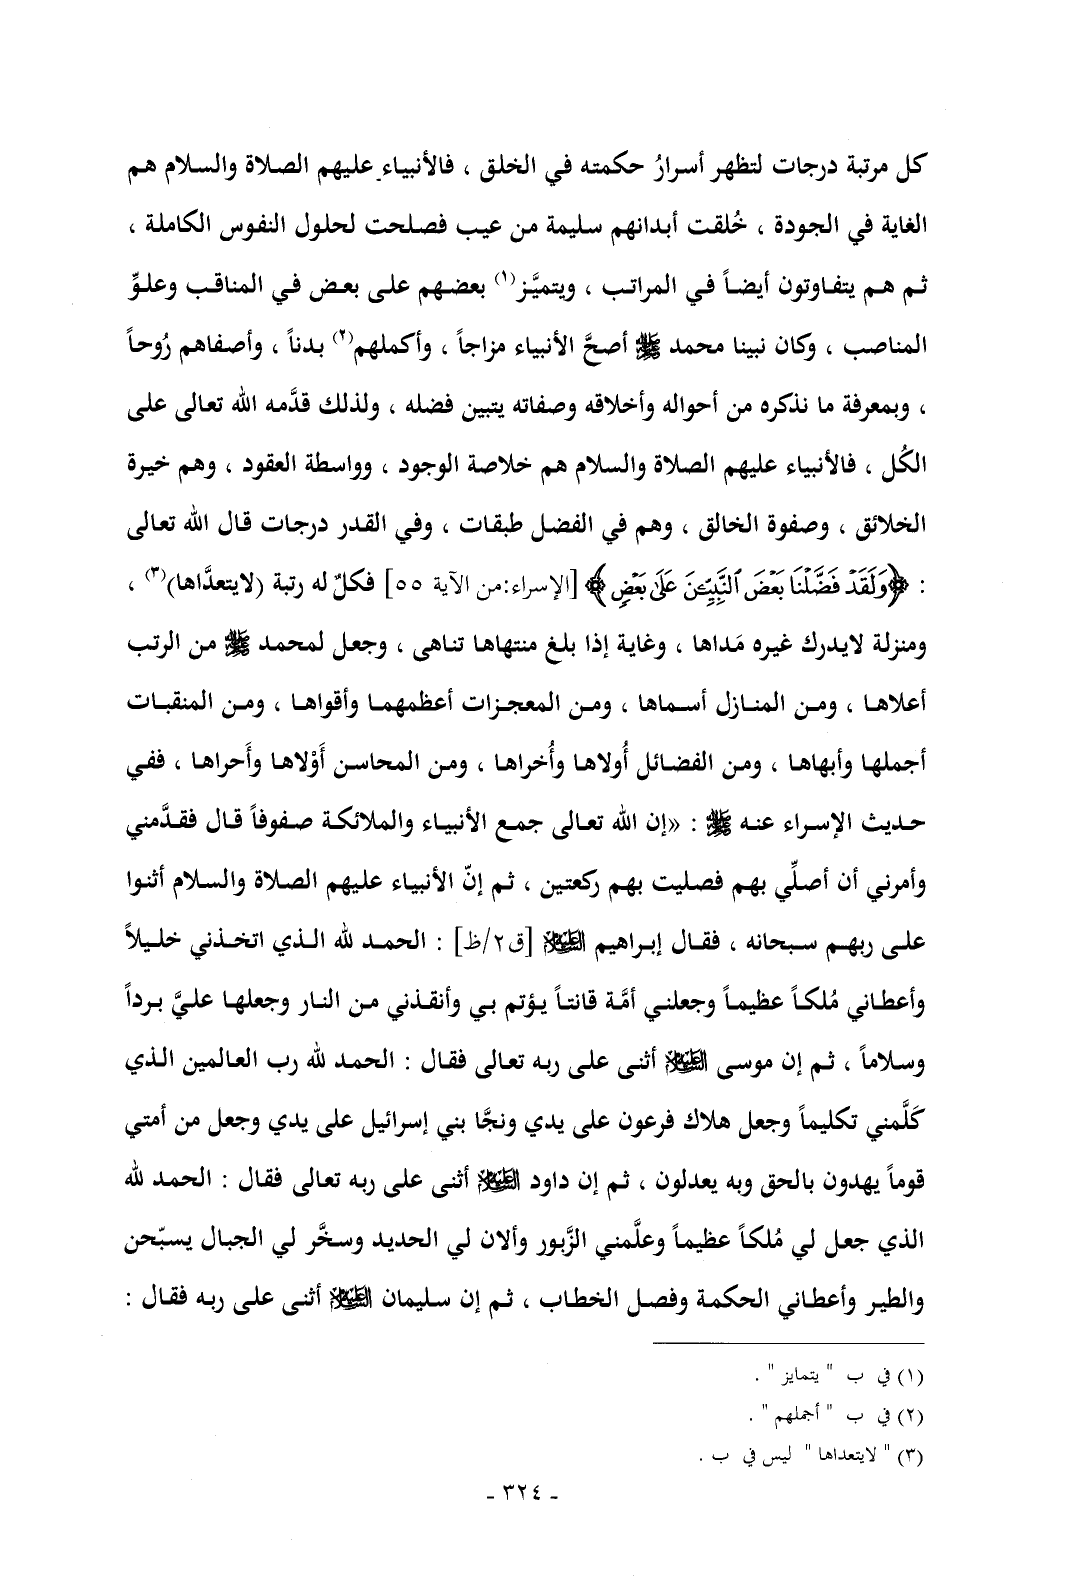 كل مرتبة درجات لتظهر أسرارُ حكمته في الخلق ، فالأنبياء عليهم الصلاة والسلام هم
الغاية في الجودة ، خُلقت أبدانهم سليمة من عيب فصلحت لحلول النفوس الكاملة ،
ثم هم يتفاوتون أيضاً في المراتب ، ويتميَّز(١) بعضهم على بعض في المناقب وعلوِّ
المناصب ، وكان نبينا محمد ﷺ أصحَّ الأنبياء مزاجاً ، وأكملهم(٢) بدناً ، وأصفاهم رُوحاً
، وبمعرفة ما نذكره من أحواله وأخلاقه وصفاته يتبين فضله ، ولذلك قدَّمه الله تعالى على
الكُل ، فالأنبياء عليهم الصلاة والسلام هم خلاصة الوجود ، وواسطة العقود ، وهم خيرة
الخلائق ، وصفوة الخالق ، وهم في الفضل طبقات ، وفي القدر درجات قال الله تعالى
: ﴿وَلَقَدْ فَضَّلْنَا بَعْضَ ٱلنَّبِيِّـۧنَ عَلَىٰ بَعْضٍ﴾ [الإسراء:من الآية ٥٥] فكلٌ له رتبة (لايتعدَّاها)(٣) ،
ومنزلة لايدرك غيره مَداها ، وغاية إذا بلغ منتهاها تناهى ، وجعل لمحمد ﷺ من الرتب
أعلاها ، ومن المنازل أسماها ، ومن المعجزات أعظمهما وأقواها ، ومن المنقبات
أجملها وأبهاها ، ومن الفضائل أُولاها وأُخراها ، ومن المحاسن أَوْلاها وأَحراها ، ففي
حديث الإسراء عنه ﷺ : «إن الله تعالى جمع الأنبياء والملائكة صفوفاً قال فقدَّمني
وأمرني أن أصلِّي بهم فصليت بهم ركعتين ، ثم إنّ الأنبياء عليهم الصلاة والسلام أثنوا
على ربهم سبحانه ، فقال إبراهيم عليه السلام [ق٢/ظ] : الحمد لله الذي اتخذني خليلاً
وأعطاني مُلكاً عظيماً وجعلني أمَّة قانتاً يؤتم بي وأنقذني من النار وجعلها عليَّ برداً
وسلاماً ، ثم إن موسى عليه السلام أثنى على ربه تعالى فقال : الحمد لله رب العالمين الذي
كَلَّمني تكليماً وجعل هلاك فرعون على يدي ونجَّا بني إسرائيل على يدي وجعل من أمتي
قوماً يهدون بالحق وبه يعدلون ، ثم إن داود عليه السلام أثنى على ربه تعالى فقال : الحمد لله
الذي جعل لي مُلكاً عظيماً وعلَّمني الزَّبور وألان لي الحديد وسخَّر لي الجبال يسبّحن
والطير وأعطاني الحكمة وفصل الخطاب ، ثم إن سليمان عليه السلام أثنى على ربه فقال :
(١) في ب " يتمايز " .
(٢) في ب " أجملهم " .
(٣) " لايتعداها " ليس في ب .
- ٣٢٤ -